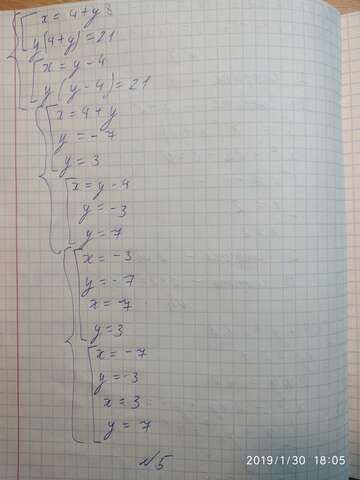 x = 4+y
y(4+y) = 21
x = y-4
y(y-4) = 21
x = 4+y
y = -7
y = 3
x = y-4
y = -3
y = 7
x = -3
y = -7
x = -7
y = 3
x = -7
y = -3
x = 3
y = 7
№5
2019/1/30 18:05